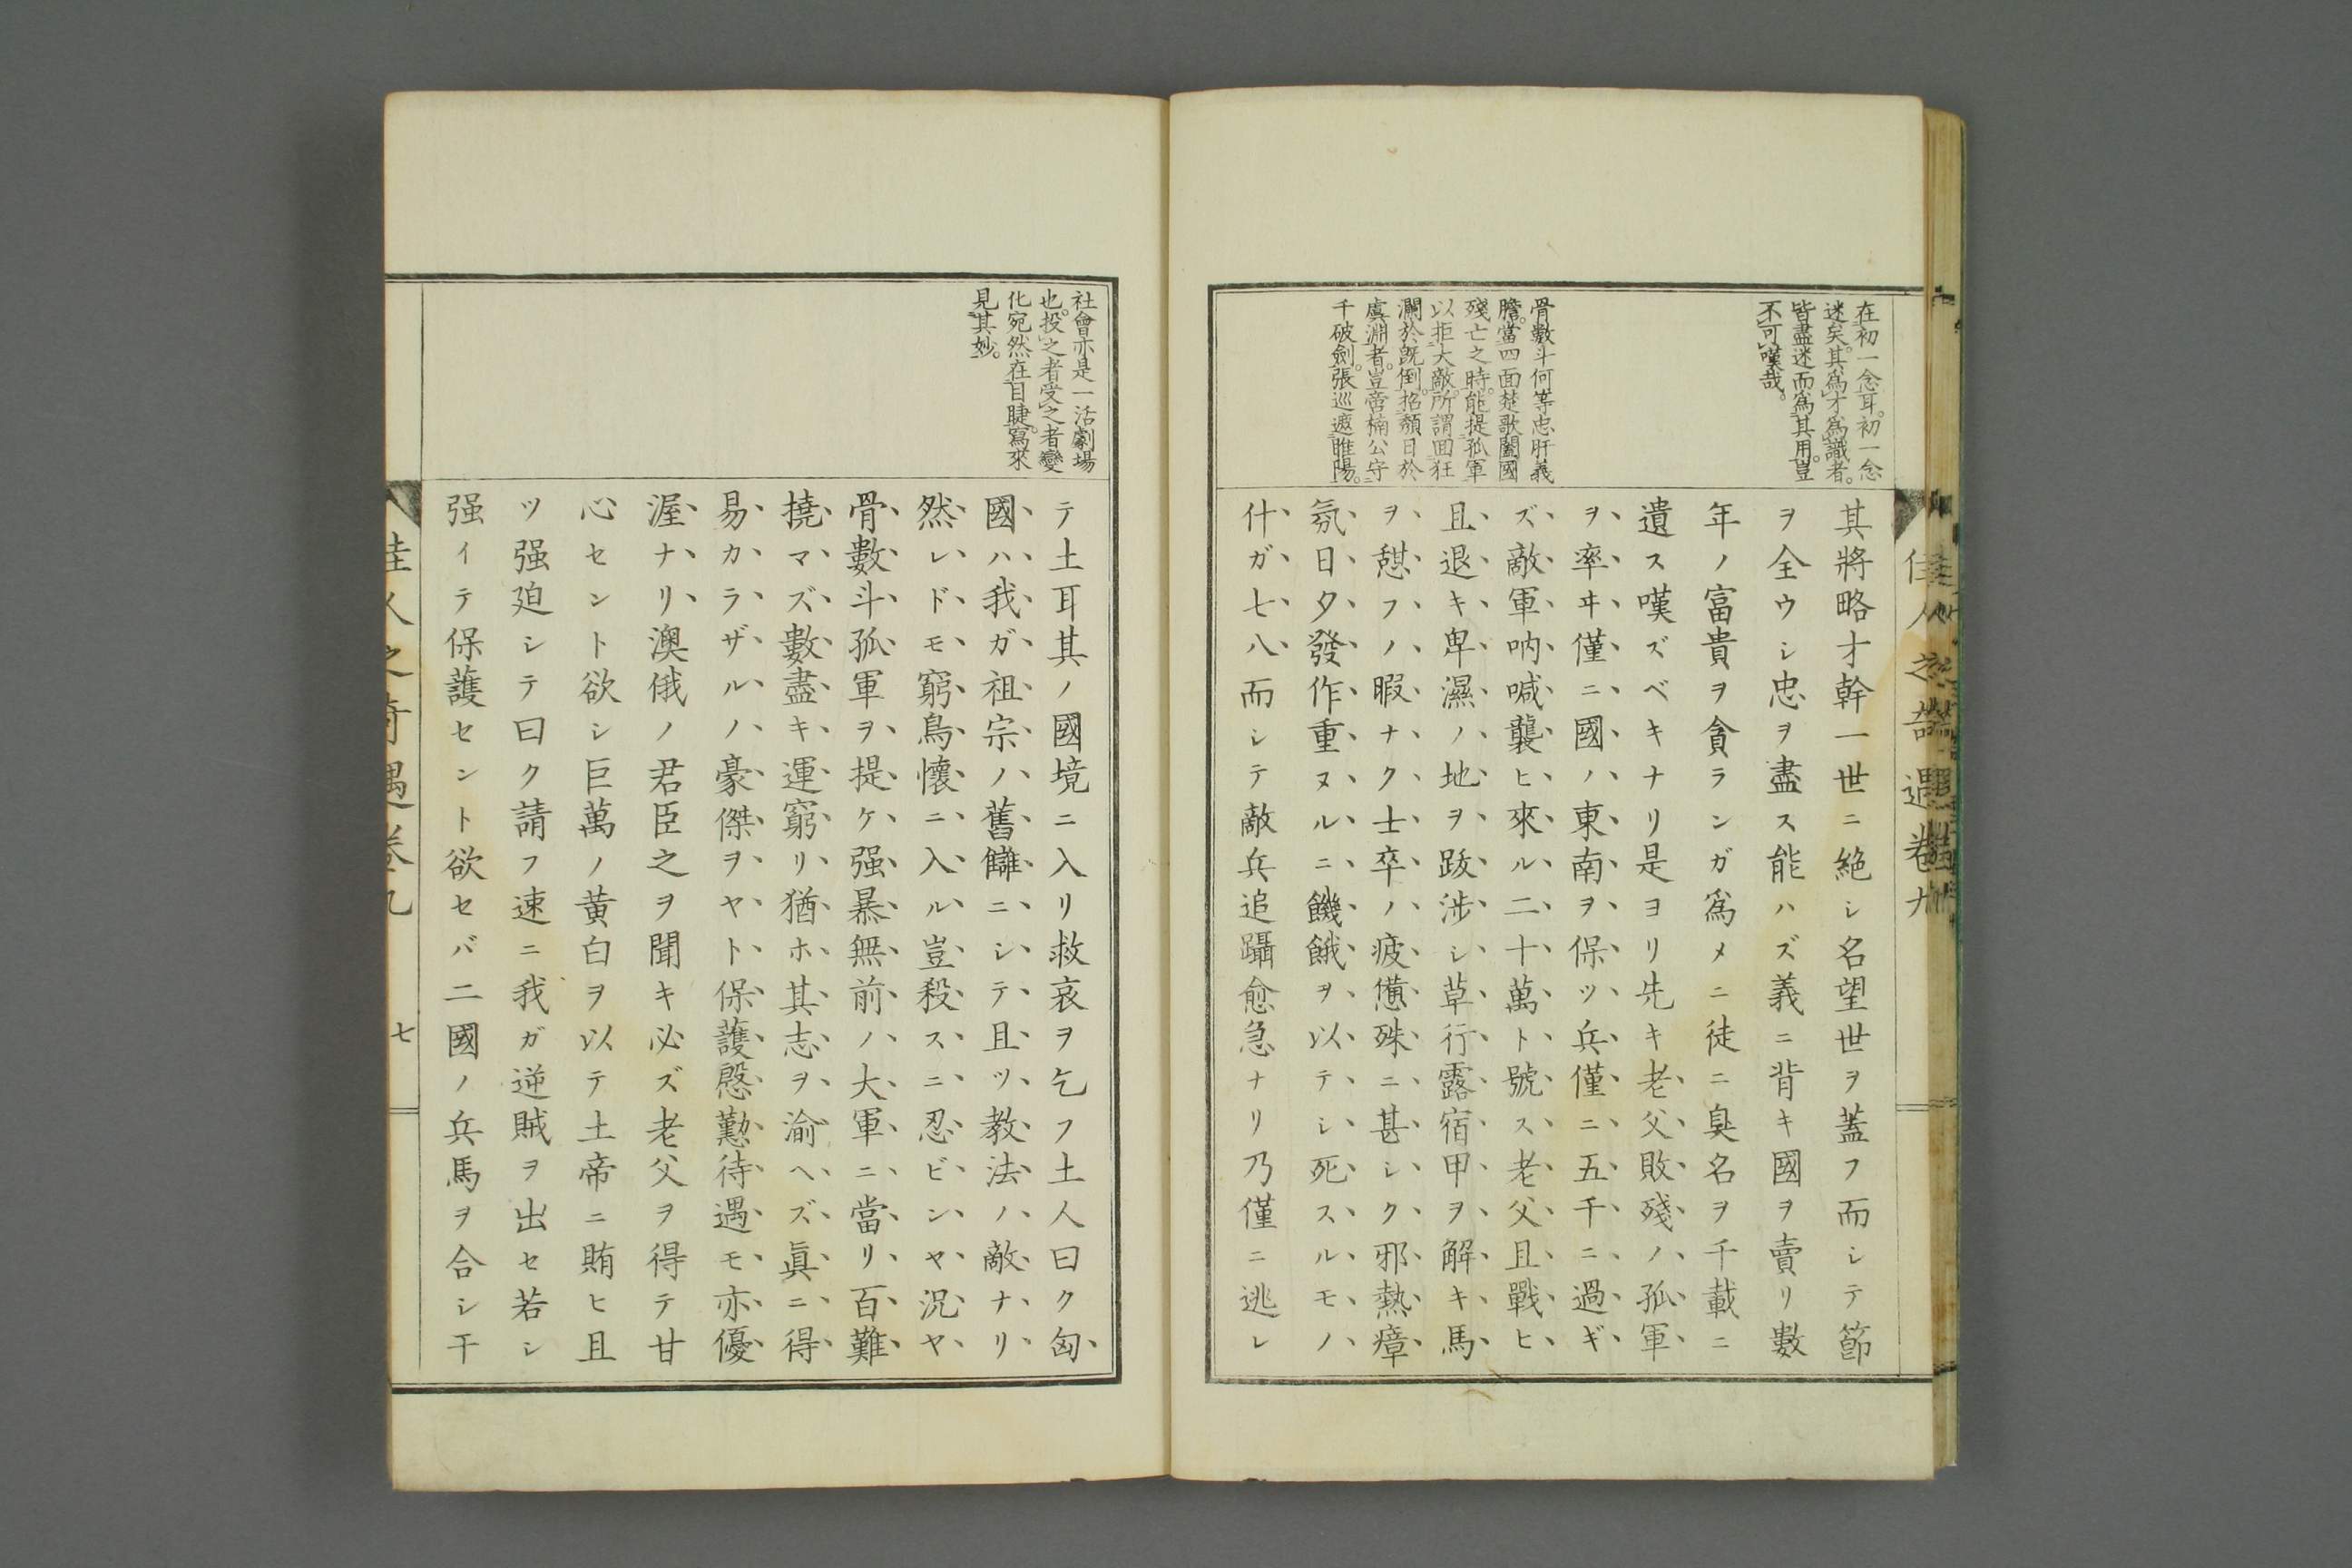 佳人之奇遇卷九
在初一念耳。初一念
迷矣。其爲才爲識者。
皆盡迷而爲其用。豈
不可嘆哉。
骨數斗何等忠肝義
膽。當四面楚歌闔國
殘亡之時。能提孤軍
以拒大敵。所謂回狂
瀾於既倒。招頽日於
虞淵者。豈啻楠公守
千破劍。張巡遮睢陽。
其將略才幹一世ニ絶シ名望世ヲ蓋フ而シテ節
ヲ全ウシ忠ヲ盡ス能ハズ義ニ背キ國ヲ賣リ數
年ノ富貴ヲ貪ランガ爲メニ徒ニ臭名ヲ千載ニ
遺ス嘆ズベキナリ是ヨリ先キ老父敗殘ノ孤軍
ヲ率ヰ僅ニ國ノ東南ヲ保ツ兵僅ニ五千ニ過ギ
ズ敵軍吶喊襲ヒ來ル二十萬ト號ス老父且戰ヒ
且退キ卑濕ノ地ヲ跋涉シ草行露宿甲ヲ解キ馬
ヲ憇フノ暇ナク士卒ノ疲憊殊ニ甚シク邪熱瘴
氛日夕發作重ヌルニ饑餓ヲ以テシ死スルモノ
什ガ七八而シテ敵兵追躡愈急ナリ乃僅ニ逃レ
社會亦是一活劇場
也。投之者受之者變
化宛然在目睫。寫來
見其妙。
テ土耳其ノ國境ニ入リ救哀ヲ乞フ土人曰ク匈
國ハ我ガ祖宗ノ舊讎ニシテ且ツ教法ノ敵ナリ
然レドモ窮鳥懷ニ入ル豈殺スニ忍ビンヤ況ヤ
骨數斗孤軍ヲ提ケ强暴無前ノ大軍ニ當リ百難
撓マズ數盡キ運窮リ猶ホ其志ヲ渝ヘズ眞ニ得
易カラザルノ豪傑ヲヤト保護慇懃待遇モ亦優
渥ナリ澳俄ノ君臣之ヲ聞キ必ズ老父ヲ得テ甘
心セント欲シ巨萬ノ黄白ヲ以テ土帝ニ賄ヒ且
ツ强迫シテ曰ク請フ速ニ我ガ逆賊ヲ出セ若シ
强イテ保護セント欲セバ二國ノ兵馬ヲ合シ干
佳人之奇遇卷九
七